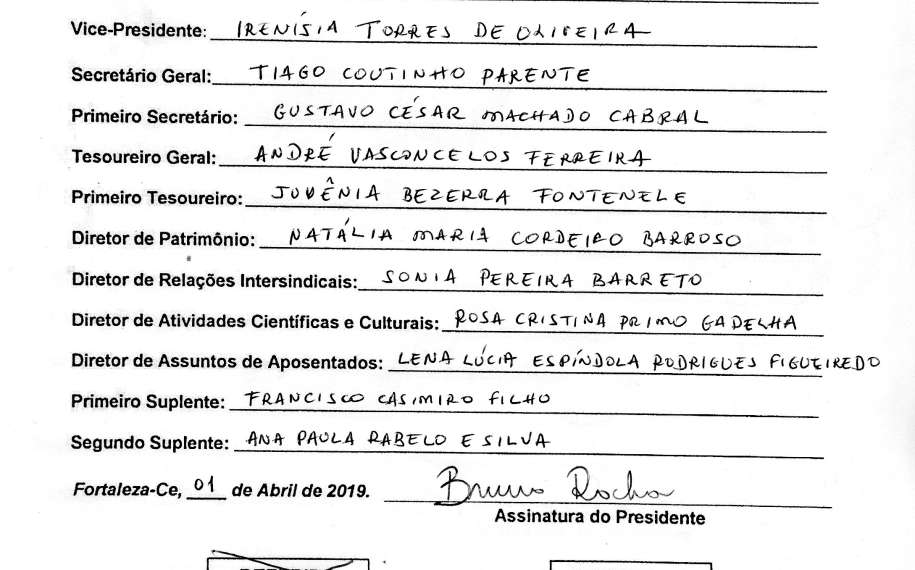 Vice-Presidente: IRENÍSIA TORRES DE OLIVEIRA
Secretário Geral: TIAGO COUTINHO PARENTE
Primeiro Secretário: GUSTAVO CÉSAR MACHADO CABRAL
Tesoureiro Geral: ANDRÉ VASCONCELOS FERREIRA
Primeiro Tesoureiro: JUVÊNIA BEZERRA FONTENELE
Diretor de Patrimônio: NATÁLIA MARIA CORDEIRO BARROSO
Diretor de Relações Intersindicais: SONIA PEREIRA BARRETO
Diretor de Atividades Científicas e Culturais: ROSA CRISTINA PRIMO GADELHA
Diretor de Assuntos de Aposentados: LENA LÚCIA ESPÍNDOLA RODRIGUES FIGUEIREDO
Primeiro Suplente: FRANCISCO CASIMIRO FILHO
Segundo Suplente: ANA PAULA RABELO E SILVA
Fortaleza-Ce, 01 de Abril de 2019. Bruno Rocha
Assinatura do Presidente